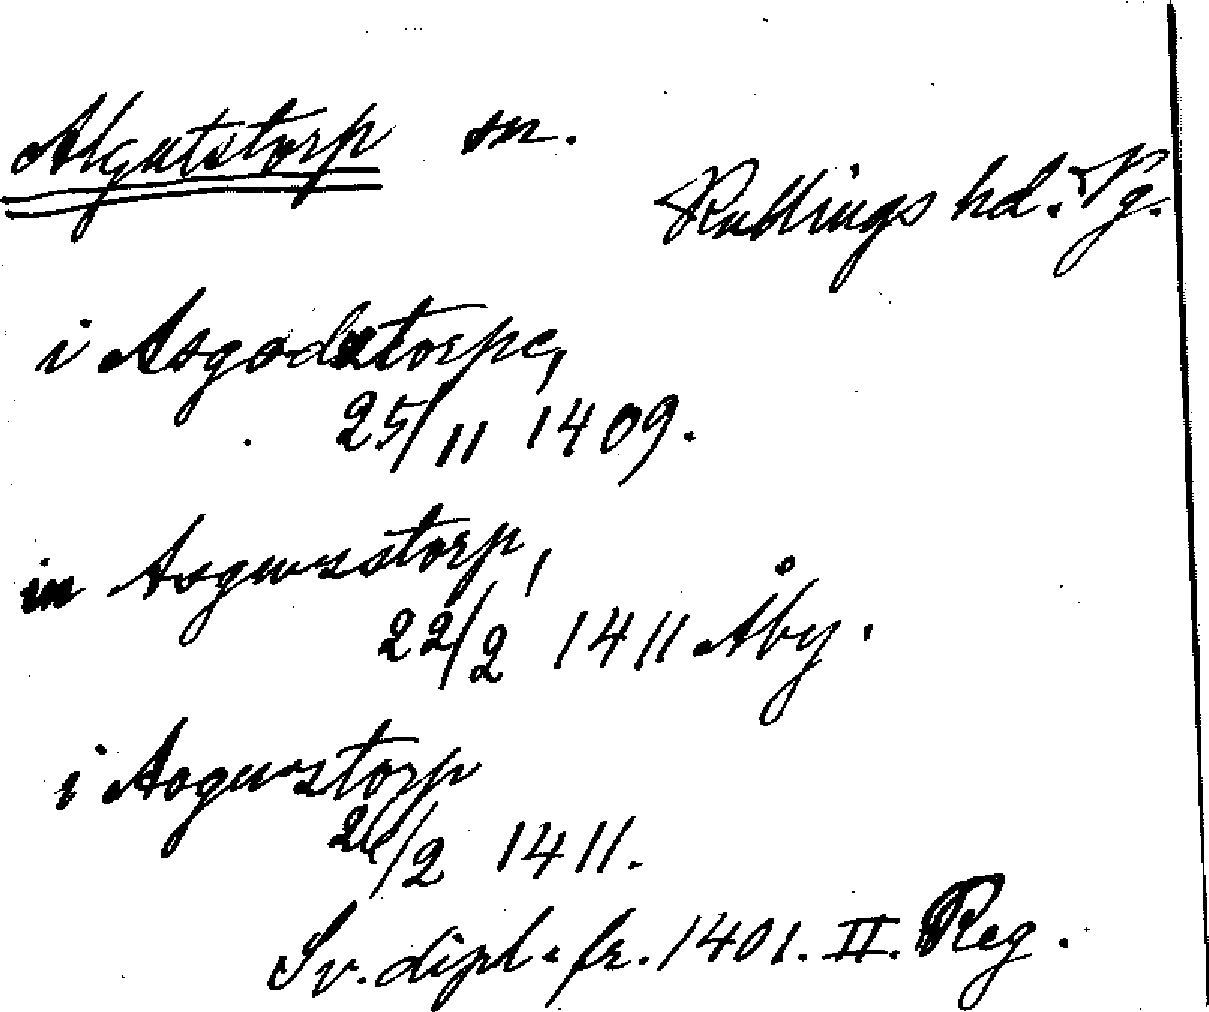 Algutstorp sn.
Kullings hd. Vg.
i Asgodztorpe,
25/11 1409.
in Asgurstorp,
22/2 1411 Åby.
i Asgurstorp
26/2 1411.
Sv. dipl. fr. 1401. II. Reg.